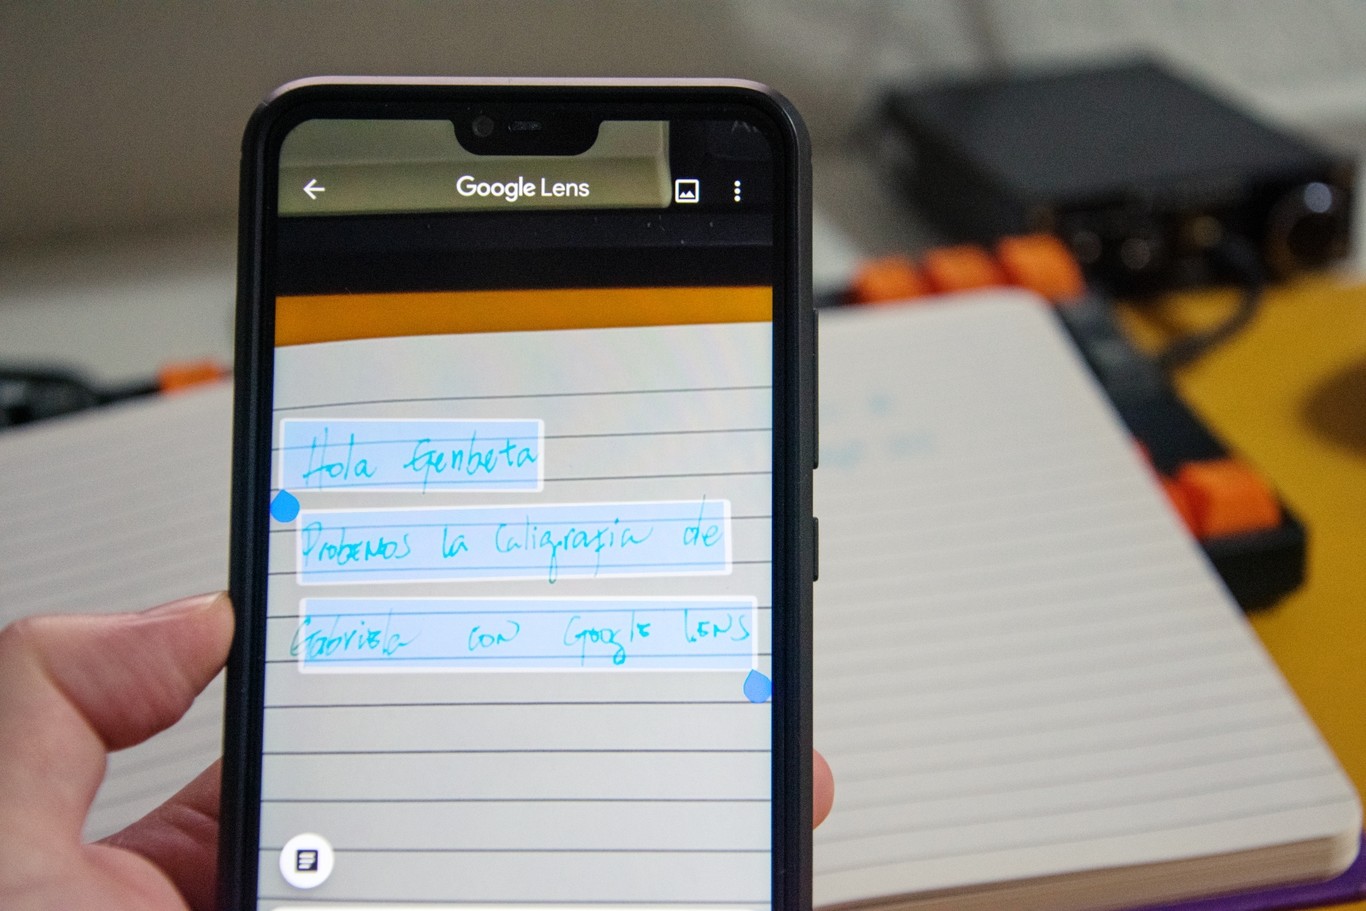 Google Lens
Hola Genbeta
Probemos la Caligrafia de
Gabriela con Google Lens